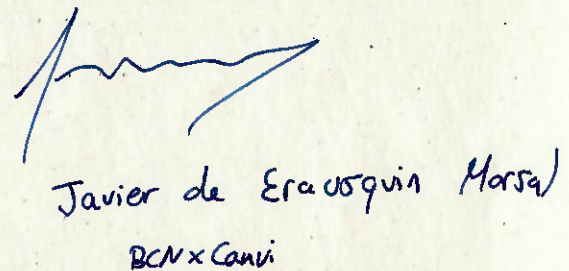 Javier de Erausquin Marsal
BCN x Canvi